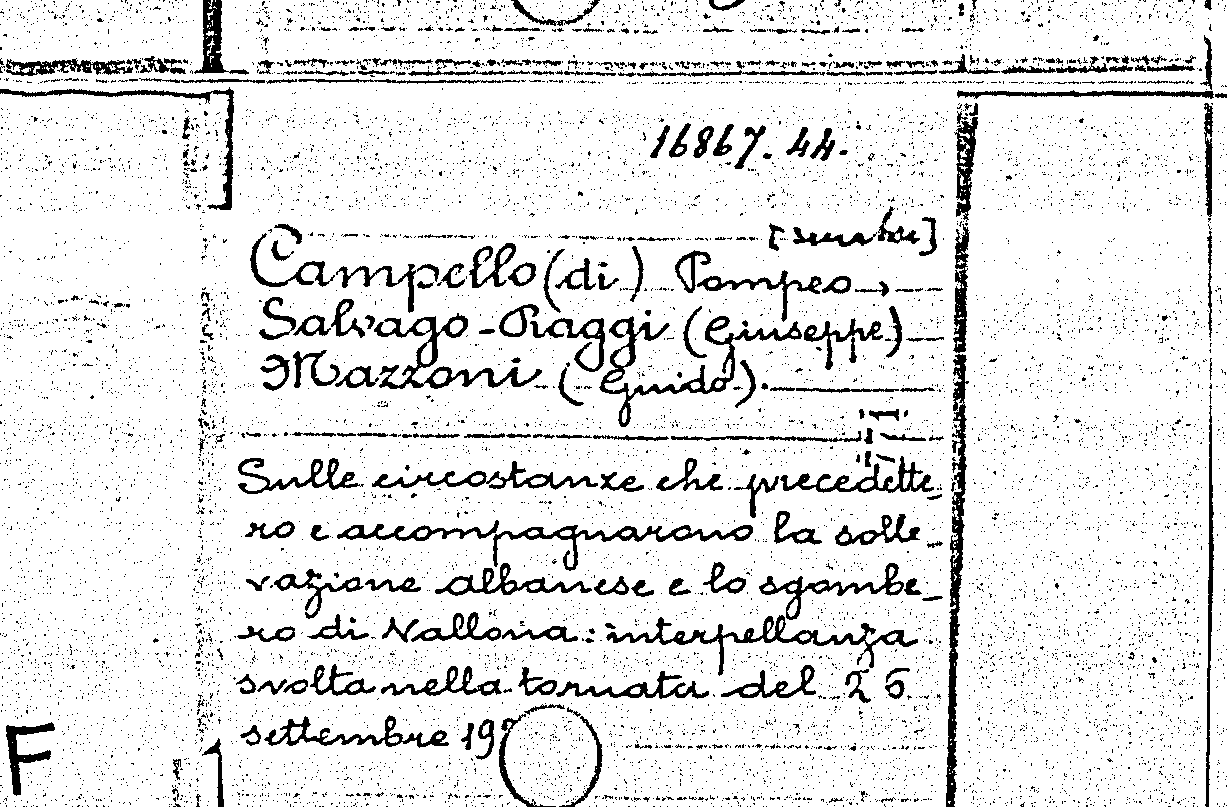 16867. 44.
[senatore]
Campello (di) Pompeo,
Salvago-Raggi (Giuseppe)
Mazzoni (Guido).
Sulle circostanze che precedette-
ro e accompagnarono la solle-
vazione albanese e lo sgombe-
ro di Vallona: interpellanza
svolta nella tornata del 25
settembre 19
F